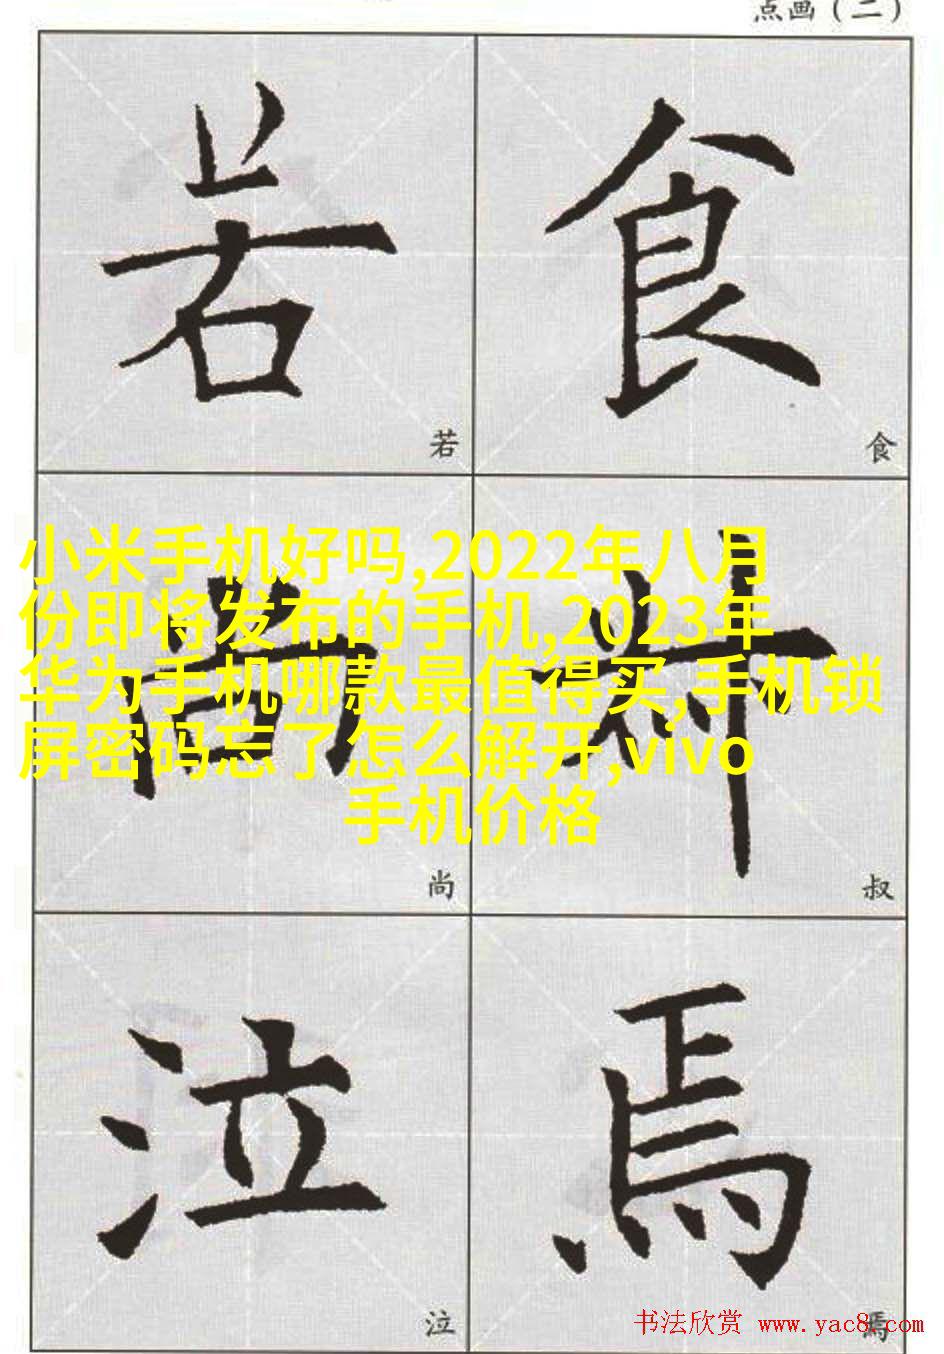 点画（二）
若 食
若 食
小米手机好吗,2022年八月
份即将发布的手机,2023年
华为手机哪款最值得买,手机锁
屏密码忘了怎么解开,vivo
手机价格
尚 叔
尚 叔
泣 焉
泣 焉
书法欣赏 www.yac8.com